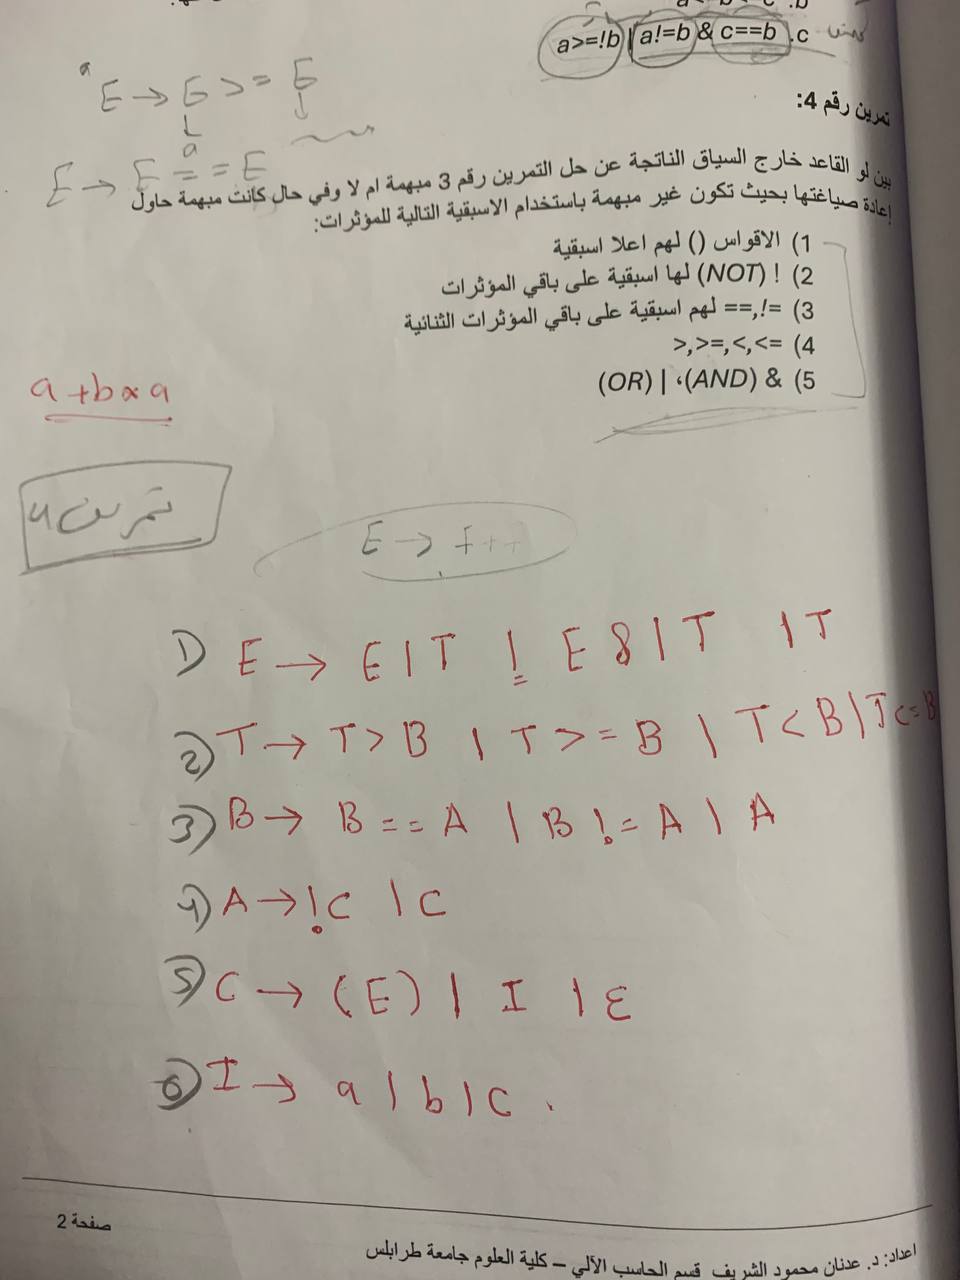 a>=!b | a!=b & c==b .c
تمرين رقم 4:
E → E >= E
a
E → E == E
بين لو القاعد خارج السياق الناتجة عن حل التمرين رقم 3 مبهمة ام لا وفي حال كانت مبهمة حاول
إعادة صياغتها بحيث تكون غير مبهمة باستخدام الاسبقية التالية للمؤثرات:
1) الاقواس () لهم اعلا اسبقية
2) ! (NOT) لها اسبقية على باقي المؤثرات
3) !=,== لهم اسبقية على باقي المؤثرات الثنائية
4) >,>=,<,<=
5) & (AND)، | (OR)
a+b*a
تمرين 4
E → I++
1) E → E | T | E & | T | T
2) T → T > B | T >= B | T < B | T <= B
3) B → B == A | B != A | A
4) A → !C | C
5) C → (E) | I | ε
6) I → a | b | c .
صفحة 2
اعداد: د. عدنان محمود الشريف قسم الحاسب الآلي – كلية العلوم جامعة طرابلس